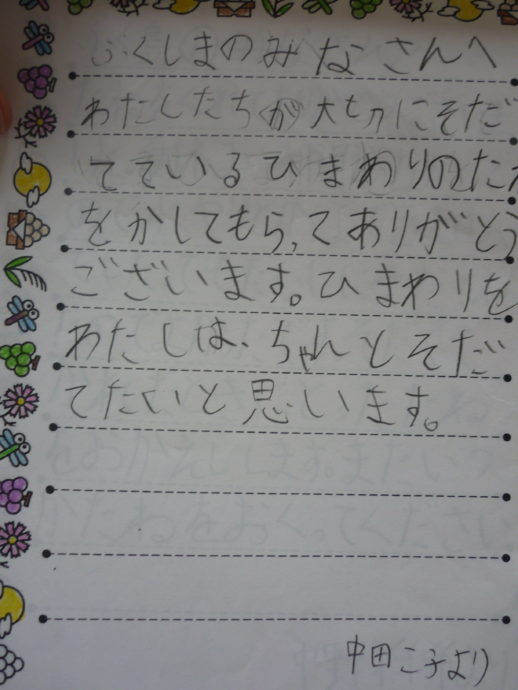 ふくしまのみなさんへ
わたしたちが大切にそだ
てているひまわりのたね
をかしてもらってありがとう
ございます。ひまわりを
わたしは、ちゃんとそだ
てたいと思います。
中田こ子より